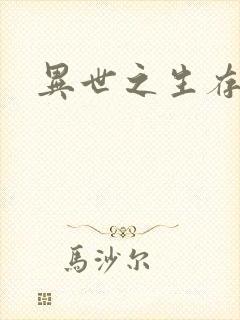 異世之生存
馬沙尔